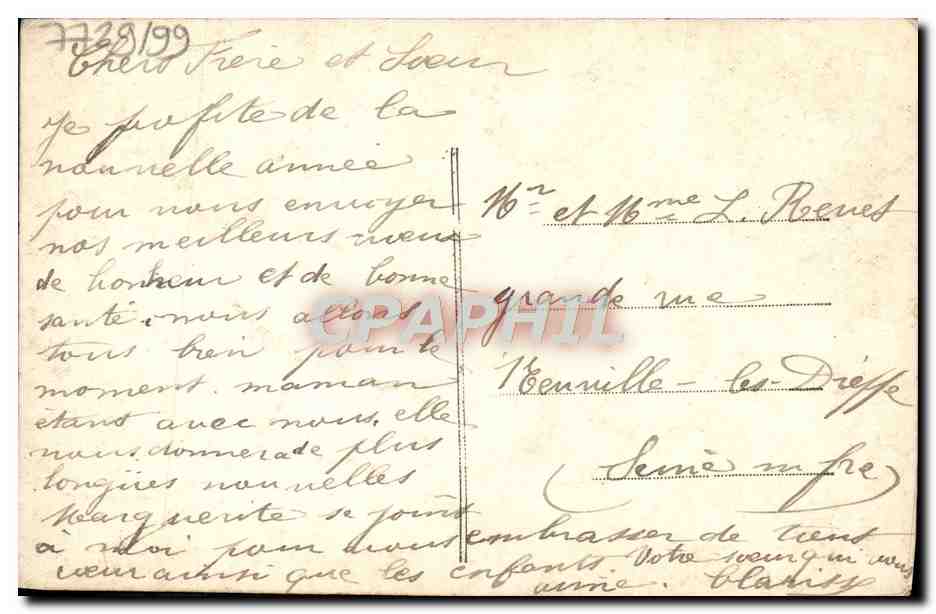 7739/99
Chers Frère et Soeur
Je profite de la
nouvelle année
pour vous envoyer
nos meilleurs voeux
de bonheur et de bonne
santé, nous allons
tous bien pour le
moment. maman
étant avec nous, elle
vous donnera de plus
longües nouvelles
Marguerite se joint
à moi pour vous embrasser de tout
coeur ainsi que les enfants Votre soeur qui vous
aime. Clarisse
Mr et Mme L. Revet
grande rue
Neuville-les-Dieppe
(Seine infre)
CPAPHIL